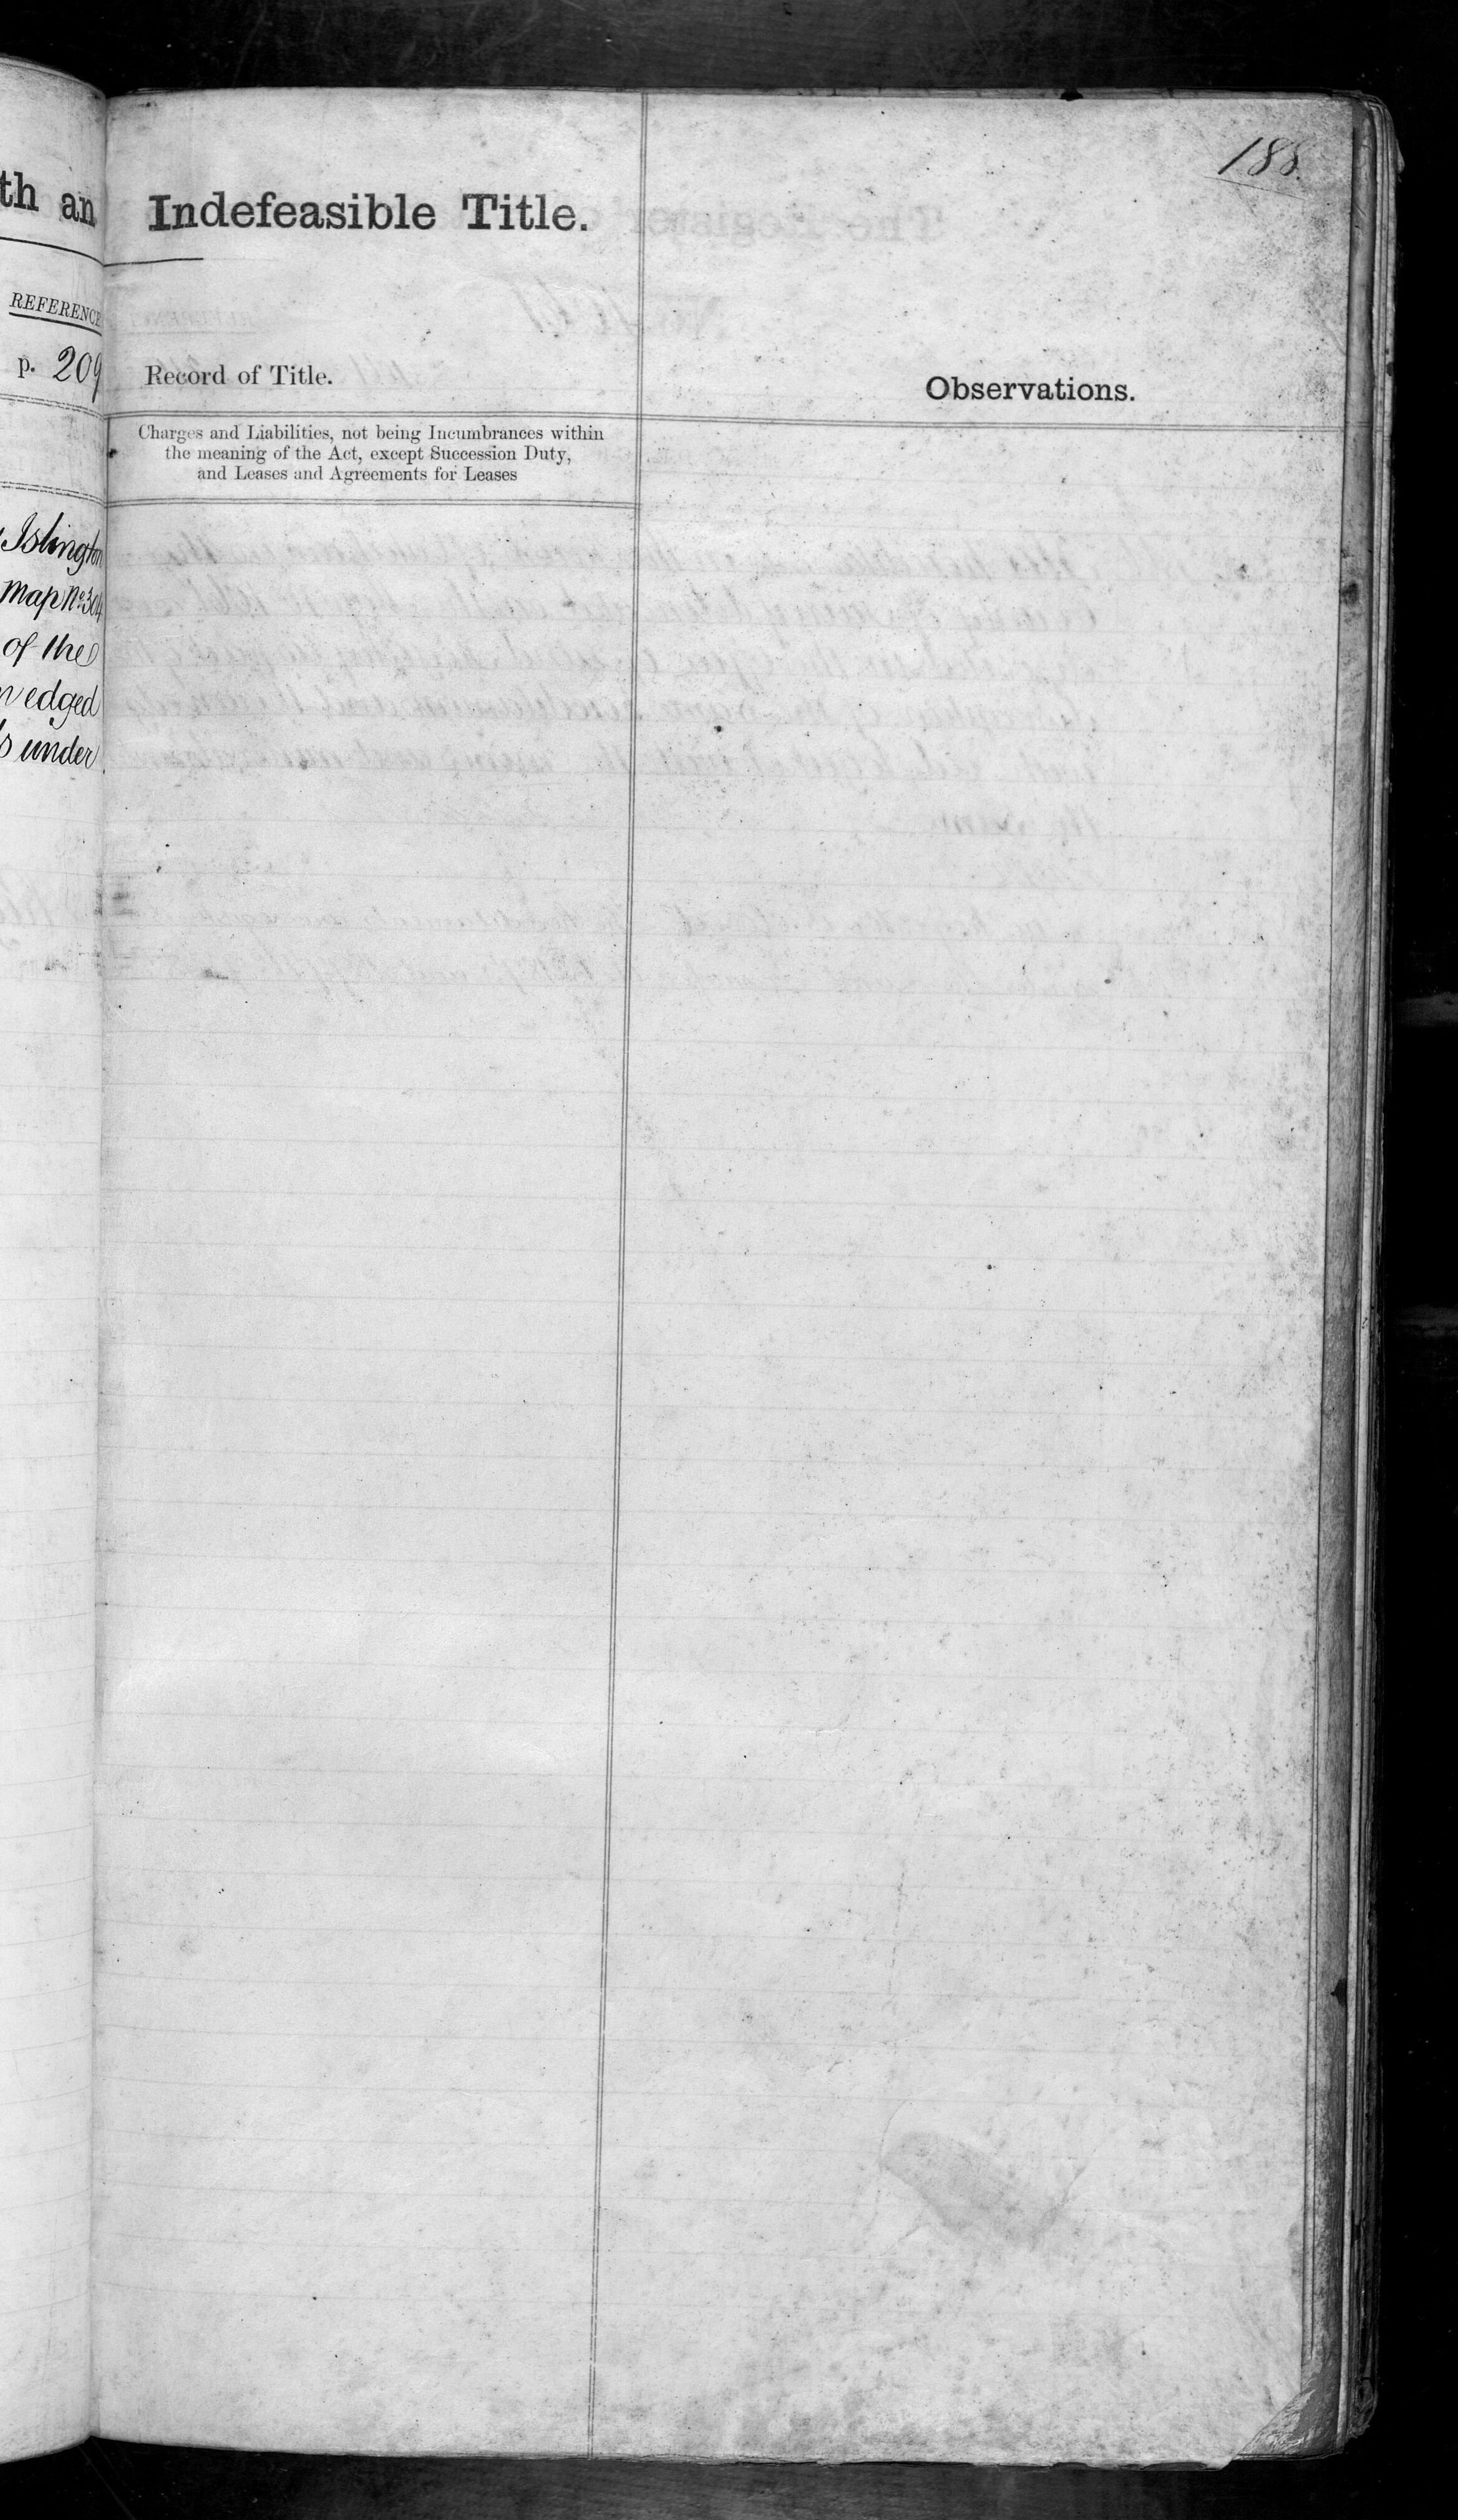 188.
th an
REFERENCE
p. 209
Islington
Map No 304
of the
edged
under
Indefeasible Title.
Record of Title.
Observations.
Charges and Liabilities, not being Incumbrances within
the meaning of the Act, except Succession Duty,
and Leases and Agreements for Leases